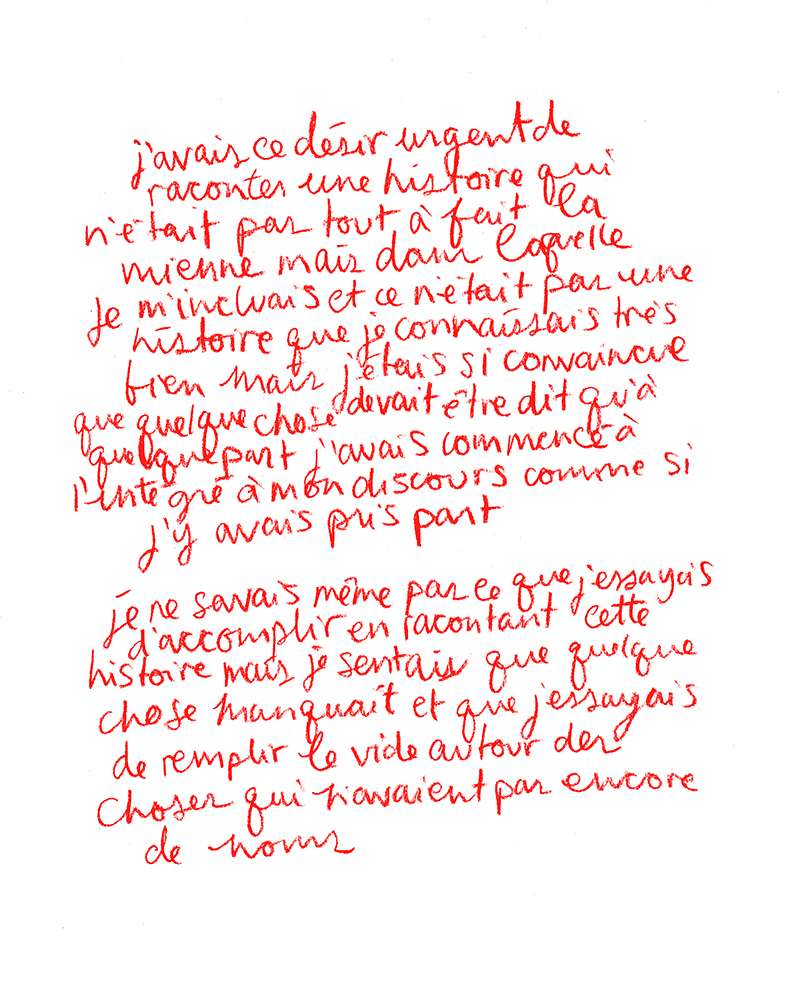 j'avais ce désir urgent de
raconter une histoire qui
n'était pas tout à fait la
mienne mais dans laquelle
je m'incluais et ce n'était pas une
histoire que je connaissais très
bien mais j'étais si convaincue
que quelque chose devait être dit qu'à
quelque part j'avais commencé à
l'intégré à mon discours comme si
j'y avais pris part
je ne savais même pas ce que j'essayais
d'accomplir en racontant cette
histoire mais je sentais que quelque
chose manquait et que j'essayais
de remplir le vide autour des
choses qui n'avaient pas encore
de noms